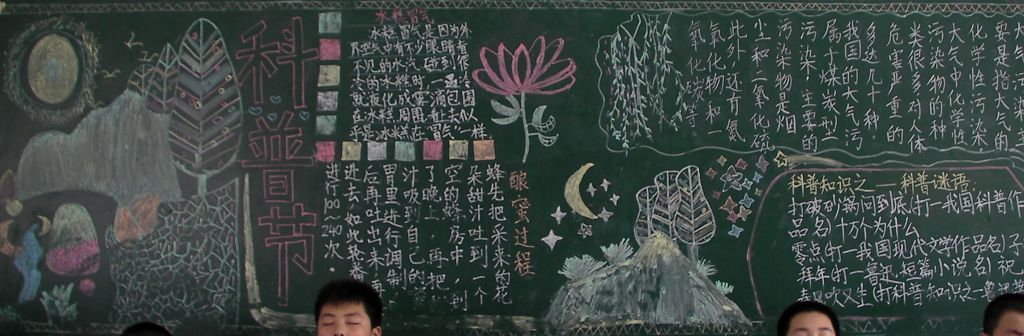 科普节
冰糕冒气
冰糕冒气是因为外
界空气中有不少眼睛看
不见的水气,碰到
的冰糕时,一遇冷
就液化成雾滴包围
在冰糕周围看上去似
乎是冰糕在"冒气"一样
酿蜜过程
蜂先把采来的花
朵甜汁吐到一个
空的蜂房中,到
了晚上,再把
汁吸到自己的
胃里进行调制
后再吐出来,再
进去,如此轮番
进行100~240次。
要是指大气的
化学性污染
大气中化学性
污染物的种
类很多对人体
危害严重的
多达几十种
我国的大气污
属于煤炭型
污染,主要的
污染物是烟
尘和二氧化硫
此外,还有氮
氧化物和一
氧化碳等。
科普知识之一——科普谜语:
打破砂锅问到底(打一我国科普作
品名)十万个为什么
零点(打一我国现代文学作品名)子
拜年(打一鲁迅短篇小说名)祝
吹又生(打科普知识之一